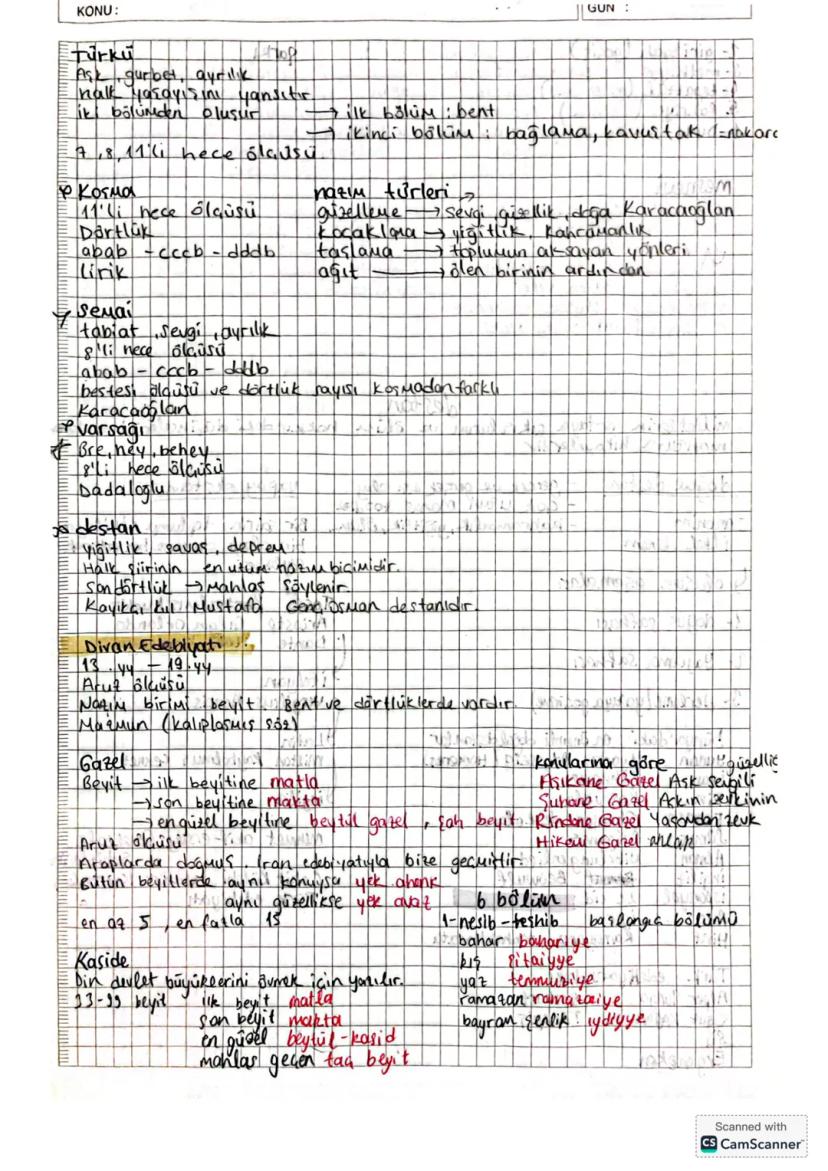 KONU:
GÜN :
Türkü
Aşk, gurbet, ayrılık
halk yaşayışını yansıtır
iki bölümden oluşur → ilk bölüm : bent
→ ikinci bölüm : bağlama, kavuştak
7, 8, 11'li hece ölçüsü
Koşma
11'li hece ölçüsü
Dörtlük
abab - cccb - dddb
Lirik
nazım türleri
güzelleme → sevgi, güzellik, doğa Karacaoğlan
koçaklama → yiğitlik, kahramanlık
taşlama → toplumun aksayan yönleri
ağıt → ölen birinin ardından
Semai
tabiat, sevgi, ayrılık
8'li hece ölçüsü
abab - cccb - dddb
bestesi ölçüsü ve dörtlük sayısı koşmadan farklı
Karacaoğlan
varsağı
Bre, hey, behey
8'li hece ölçüsü
Dadaloğlu
destan
yiğitlik, savaş, deprem
Halk şiirinin en uzun nazım biçimidir.
Son dörtlük → Mahlas söylenir.
Kayıkçı Kul Mustafa Genç Osman destanıdır.
Divan Edebiyatı :
13.yy - 19.yy
Aruz ölçüsü
Nazım birimi beyit. Bent've dörtlüklerde vardır.
Mazmun (kalıplaşmış söz)
Gazel
Beyit → ilk beyitine matla
→ son beyitine makta
→ en güzel beyitine beytül gazel, şah beyit
Aruz ölçüsü
Araplarda doğmuş. İran edebiyatıyla bize geçmiştir.
Bütün beyitlerde aynı konuysa yek ahenk
aynı güzellikse yek avaz
en az 5, en fazla 15
konularına göre
Aşıkane Gazel Aşk sevgili güzellik
Şuhane Gazel Aşkın zevkinin
Rindane Gazel Yaşamdan zevk
Hikemi Gazel ahlak
Kaside
Din devlet büyüklerini övmek için yazılır.
33-99 beyit ilk beyit matla
son beyit makta
en güzel beytül-kasid
mahlas geçen taç beyit
6 bölüm
1-nesib-teşbib başlangıç bölümü
bahar bahariye
kış şitaiyye
yaz temmuziye
ramazan ramazaiye
bayram şenlik : ıydiyye
Scanned with
CS CamScanner